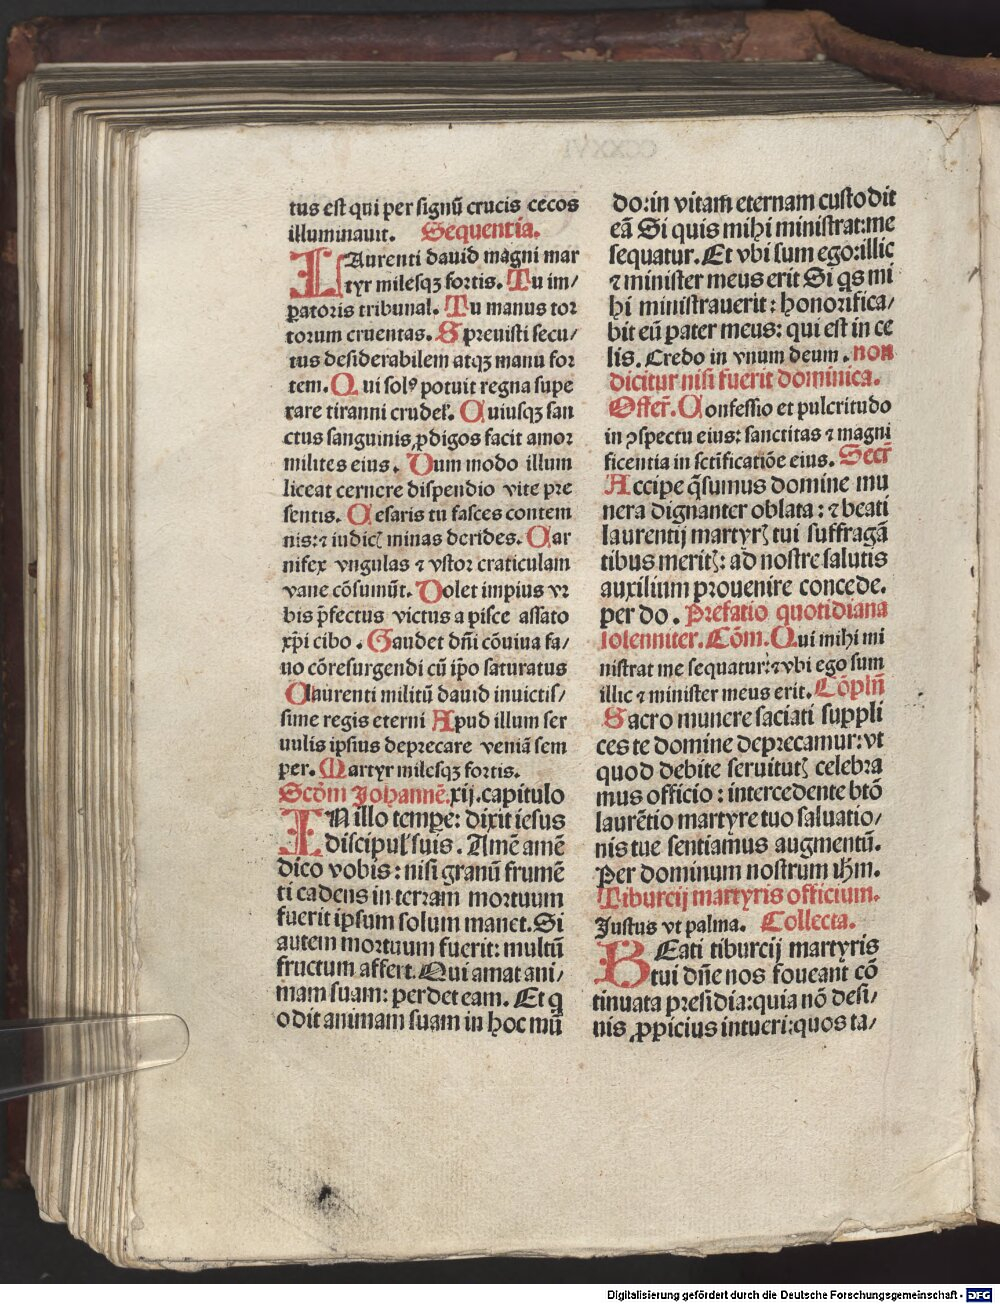 tus est qui per signū crucis cecos
illuminauit. Sequentia.
LAurenti dauid magni mar
tyr milesqꝫ fortis. Tu im/
ꝑatoris tribunal. Tu manus tor
torum cruentas. Spreuisti secu/
tus desiderabilem atqꝫ manu for
tem. Qui solꝰ potuit regna supe
rare tiranni crudel'. Cuiusqꝫ san
ctus sanguinis ꝓdigos facit amor
milites eius. Dum modo illum
liceat cernere dispendio vite pre
sentis. Cesaris tu fasces contem
nis:⁊ iudicꝫ minas derides. Car
nifex vngulas ⁊ vstor craticulam
vane cōsumūt. Dolet impius vr
bis p̄fectus victus a pisce assato
xp̄i cibo. Gaudet dn̄i cōuiua fa/
uo cōresurgendi cū ip̄o saturatus
O laurenti militū dauid inuictis/
sime regis eterni Apud illum ser
uulis ipsius deprecare veniā sem
per. Martyr milesqꝫ fortis.
Scd̄m Johannē.xij.capitulo
IN illo tempe: dixit iesus
discipul' suis. Amē amē
dico vobis: nisi granū frumē
ti cadens in terram mortuum
fuerit ipsum solum manet. Si
autem mortuum fuerit: multū
fructum affert. Qui amat ani/
mam suam: perdet eam. Et q
odit animam suam in hoc mū
do: in vitam eternam custodit
eā Si quis mihi ministrat: me
sequatur. Et vbi sum ego: illic
⁊ minister meus erit Si qs mi
hi ministrauerit: honorifica/
bit eū pater meus: qui est in ce
lis. Credo in vnum deum. non
dicitur nisi fuerit dominica.
Offer̄. Confessio et pulcritudo
in ꝯspectu eius: sanctitas ⁊ magni
ficentia in sctīficatiōe eius. Secr̄
Accipe q̄sumus domine mu
nera dignanter oblata: ⁊ beati
laurentij martyrꝫ tui suffragā
tibus meritꝫ: ad nostre salutis
auxilium prouenire concede.
per do. Prefatio quotidiana
solenniter. Cōm. Qui mihi mi
nistrat me sequatur: ⁊ vbi ego sum
illic ⁊ minister meus erit. Cōpln̄
Sacro munere saciati suppli
ces te domine deprecamur: vt
quod debite seruitutꝫ celebra
mus officio: intercedente btō
laurētio martyre tuo saluatio/
nis tue sentiamus augmentū.
Per dominum nostrum ih̄m.
Tiburcij martyris officium.
Justus vt palma. Collecta.
BEati tiburcij martyris
tui dn̄e nos foueant cō
tinuata presidia: quia nō desi/
nis ꝓpicius intueri: quos ta/
Digitalisierung gefördert durch die Deutsche Forschungsgemeinschaft - DFG